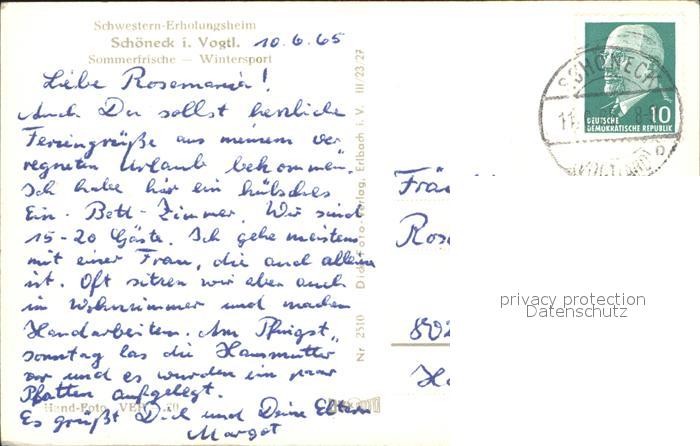 Schwestern-Erholungsheim
Schöneck i. Vogtl. 10.6.65
Sommerfrische — Wintersport
Liebe Rosemarie!
Auch Du sollst herzliche
Feriengrüße aus meinem ver„
regneten Urlaub bekommen.
Ich habe hier ein hübsches
Ein-Bett-Zimmer. Wir sind
15-20 Gäste. Ich gehe meistens
mit einer Frau, die auch allein
ist. Oft sitzen wir aber auch
im Wohnzimmer und machen
Handarbeiten. Am Pfingst„
sonntag las die Hausmutter
vor und es wurden ein paar
Platten aufgelegt.
Es grüßt Dich und Deine Eltern
Margot
Hand-Foto
Nr. 2510 Dick-Foto-Verlag, Erlbach i. V. III/23/27
SCHÖNECK
11.
8-
DEUTSCHE
DEMOKRATISCHE REPUBLIK
10
(VOGTL)
Frä
Ros
802
Ha
privacy protection
Datenschutz